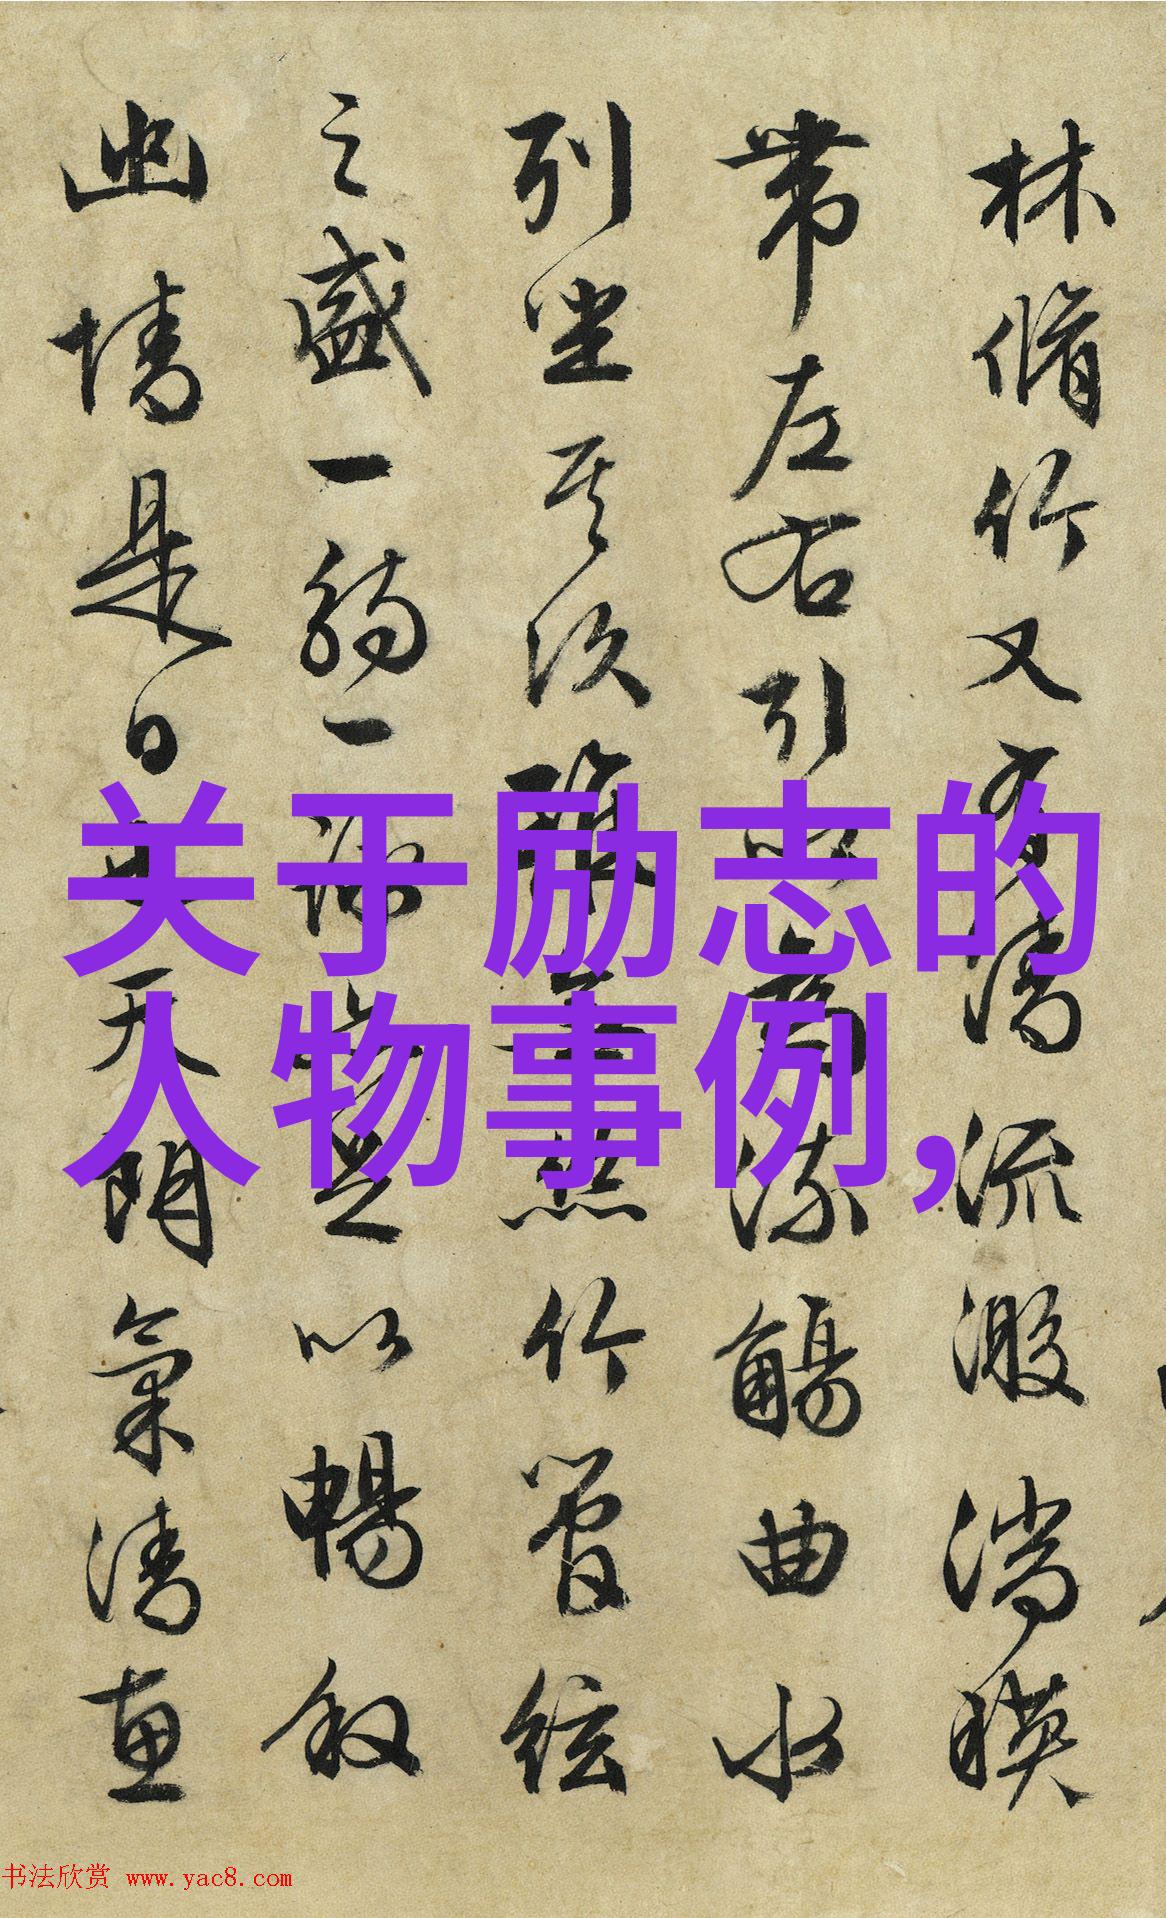 林脩竹又有清流激湍暎
帶左右引以為流觴曲水
列坐其次雖無絲竹管絃
之盛一觴一詠亦足以暢叙
幽情是日也天朗氣清惠
关于励志的
人物事例,
书法欣赏 www.yac8.com